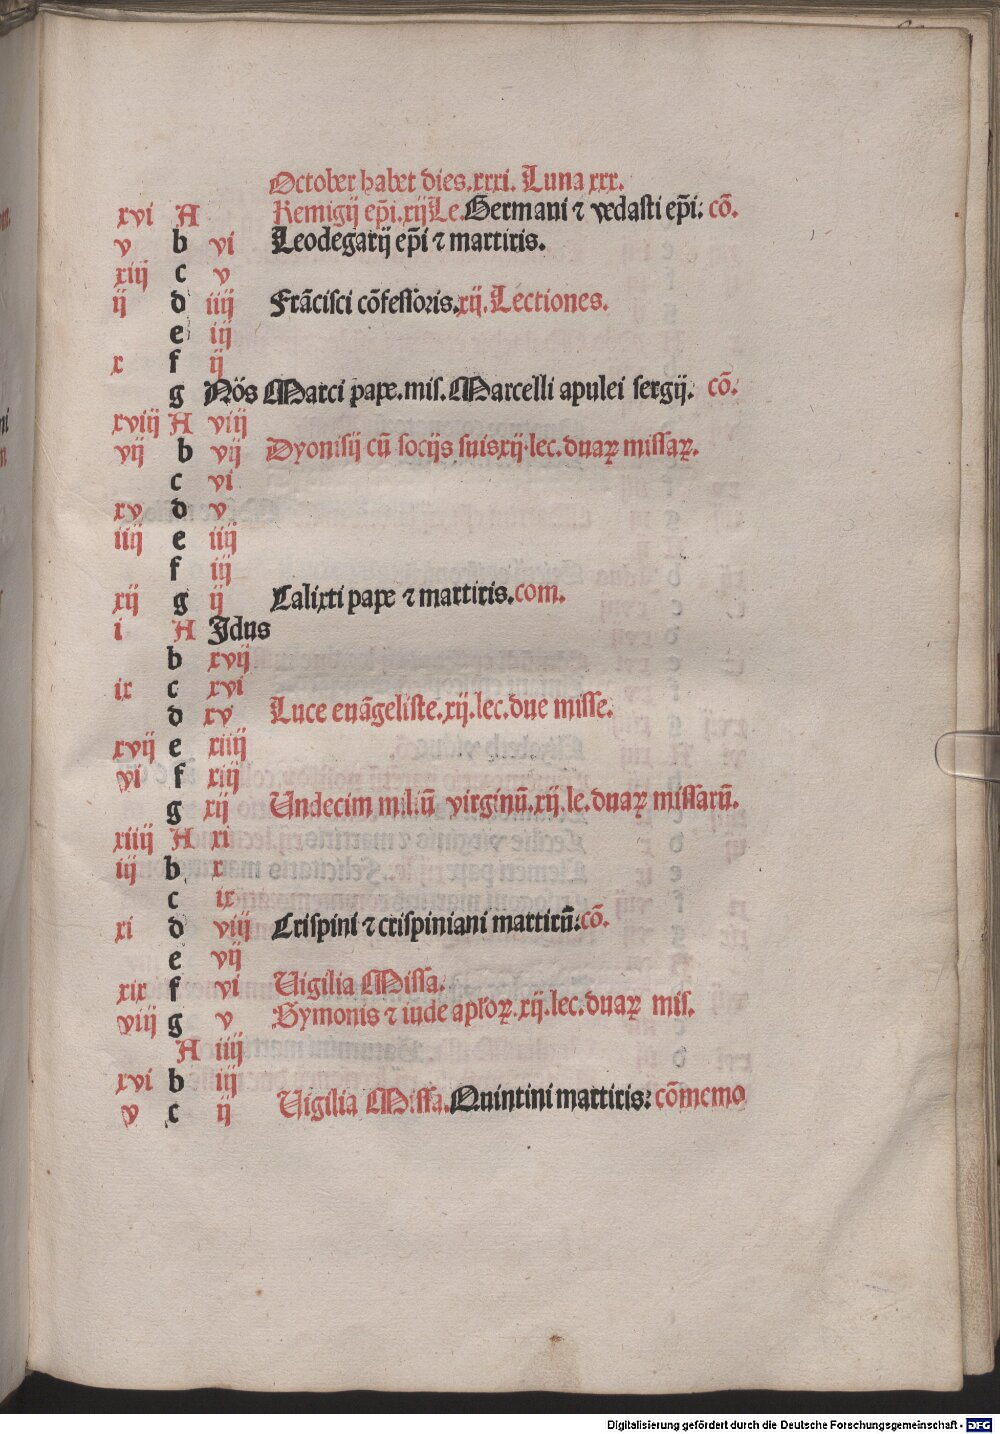 October habet dies.xxxi. Luna xxx.
xvi A Remigij ep̄i.xij Le. Germani ⁊ vedasti ep̄i: cō.
v b vi Leodegarij ep̄i ⁊ martiris.
xiij c v
ij d iiij Frācisci cōfessoris.xij.Lectiones.
e iij
x f ij
g Nōs Marci pape.mis.Marcelli apulei sergij. cō.
xviij A viij
vij b vij Dyonisij cū socijs suis xij.lec.duaꝝ missaꝝ.
c vi
xv d v
iiij e iiij
f iij
xij g ij Calixti pape ⁊ martiris.com.
i A Jdus
b xvij
ix c xvi
d xv Luce euāgeliste.xij.lec.due misse.
xvij e xiiij
vi f xiij
g xij Undecim miliū virginū.xij.le.duaꝝ missarū.
xiiij A xi
iij b x
c ix
xi d viij Crispini ⁊ crispiniani martirū:cō.
e vij
xix f vi Vigilia Missa.
viij g v Symonis ⁊ iude apl'oꝝ.xij.lec.duaꝝ mis.
A iiij
xvi b iij
v c ij Vigilia Missa.Quintini martiris: cōmemo
Digitalisierung gefördert durch die Deutsche Forschungsgemeinschaft - DFG